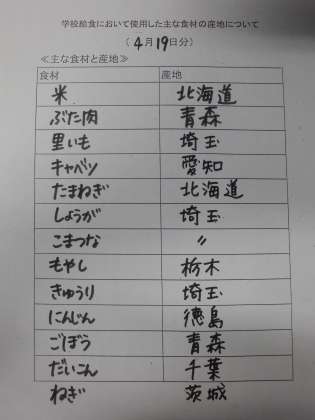 学校給食において使用した主な食材の産地について
(4月19日分)
≪主な食材と産地≫
食材 産地
米 北海道
ぶた肉 青森
里いも 埼玉
キャベツ 愛知
たまねぎ 北海道
しょうが 埼玉
こまつな 〃
もやし 栃木
きゅうり 埼玉
にんじん 徳島
ごぼう 青森
だいこん 千葉
ねぎ 茨城